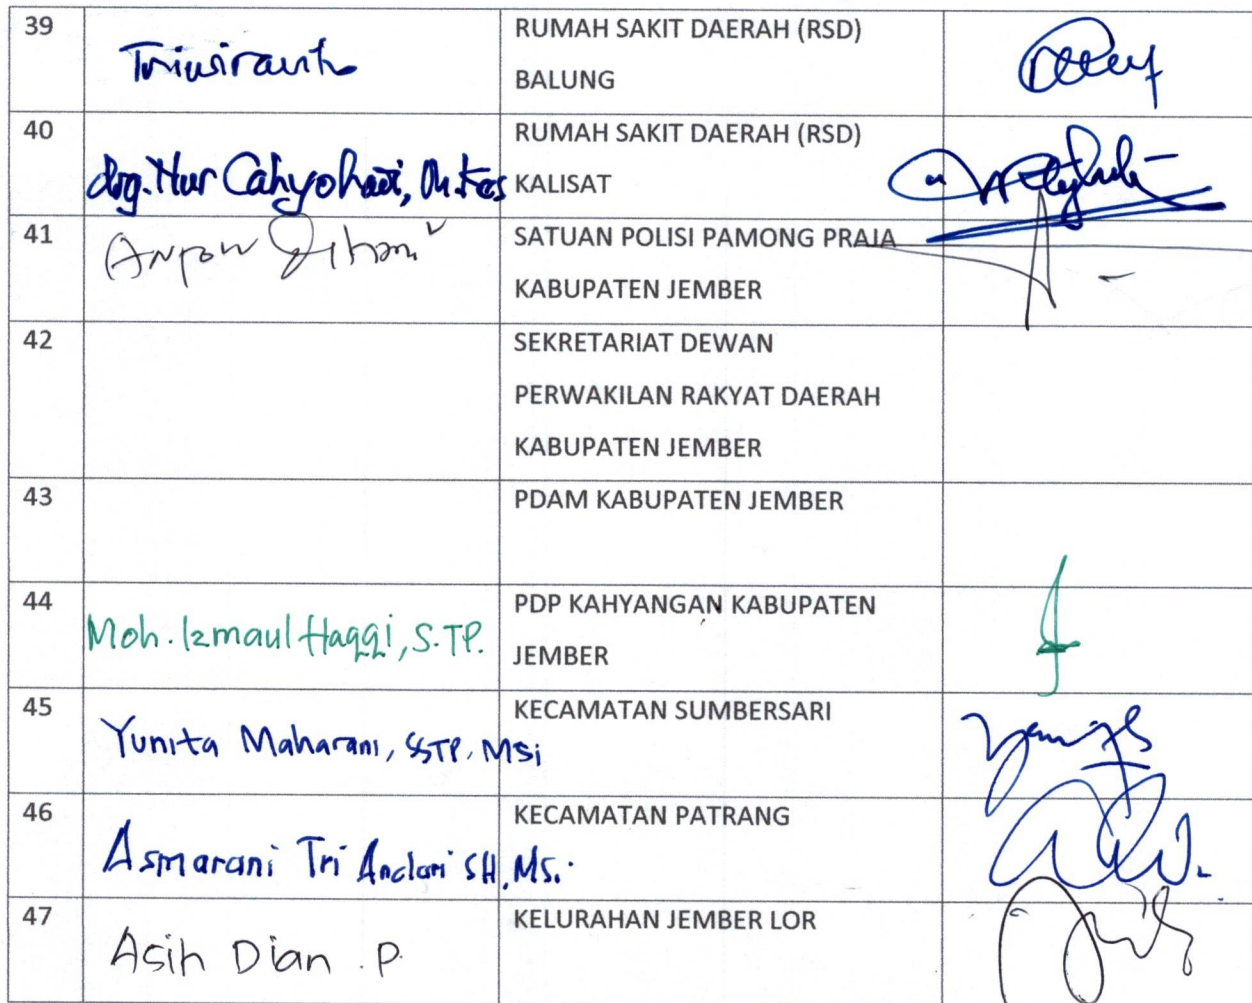 39
Triwiranto
RUMAH SAKIT DAERAH (RSD)
BALUNG
40
drg. Nur Cahyohadi, M.Kes
RUMAH SAKIT DAERAH (RSD)
KALISAT
41
SATUAN POLISI PAMONG PRAJA
KABUPATEN JEMBER
42
SEKRETARIAT DEWAN
PERWAKILAN RAKYAT DAERAH
KABUPATEN JEMBER
43
PDAM KABUPATEN JEMBER
44
Moh. Izmaul Haqqi, S.TP.
PDP KAHYANGAN KABUPATEN
JEMBER
45
Yunita Maharani, SSTP, MSi
KECAMATAN SUMBERSARI
46
Asmarani Tri Andari SH, MSi.
KECAMATAN PATRANG
47
Asih Dian . P
KELURAHAN JEMBER LOR